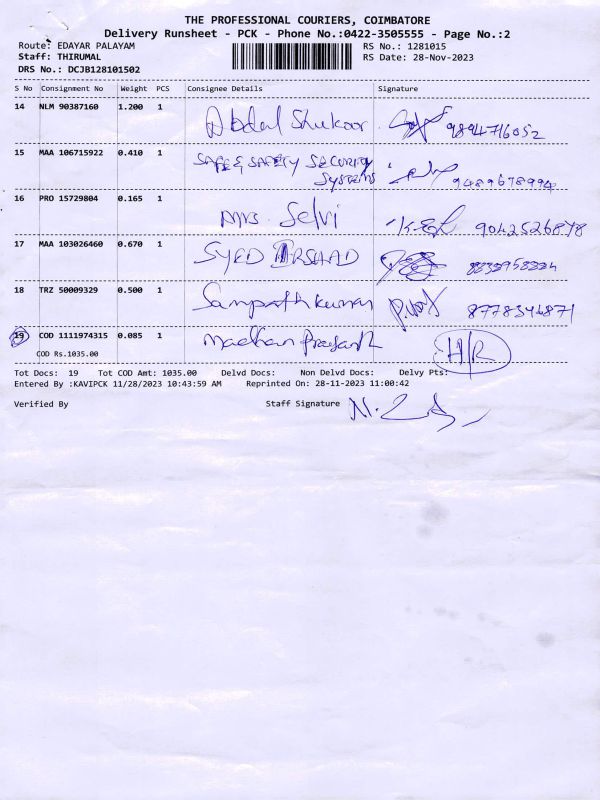 THE PROFESSIONAL COURIERS, COIMBATORE
Delivery Runsheet - PCK - Phone No.:0422-3505555 - Page No.:2
Route: EDAYAR PALAYAM RS No.: 1281015
Staff: THIRUMAL RS Date: 28-Nov-2023
DRS No.: DCJB128101502
S No Consignment No Weight PCS Consignee Details Signature
14 NLM 90387160 1.200 1 Abdal Shukoor 9894716052
15 MAA 106715922 0.410 1 SAFE & SAFETY SECURITY
SYSTEMS 9489678994
16 PRO 15729804 0.165 1 Mrs. Selvi 9042526878
17 MAA 103026460 0.670 1 SYED IRSHAD
18 TRZ 50009329 0.500 1 Sampathkumar
19 COD 1111974315 0.085 1 Madhan Prasanth H/R
COD Rs.1035.00
Tot Docs: 19 Tot COD Amt: 1035.00 Delvd Docs: Non Delvd Docs: Delvy Pts:
Entered By :KAVIPCK 11/28/2023 10:43:59 AM Reprinted On: 28-11-2023 11:00:42
Verified By Staff Signature